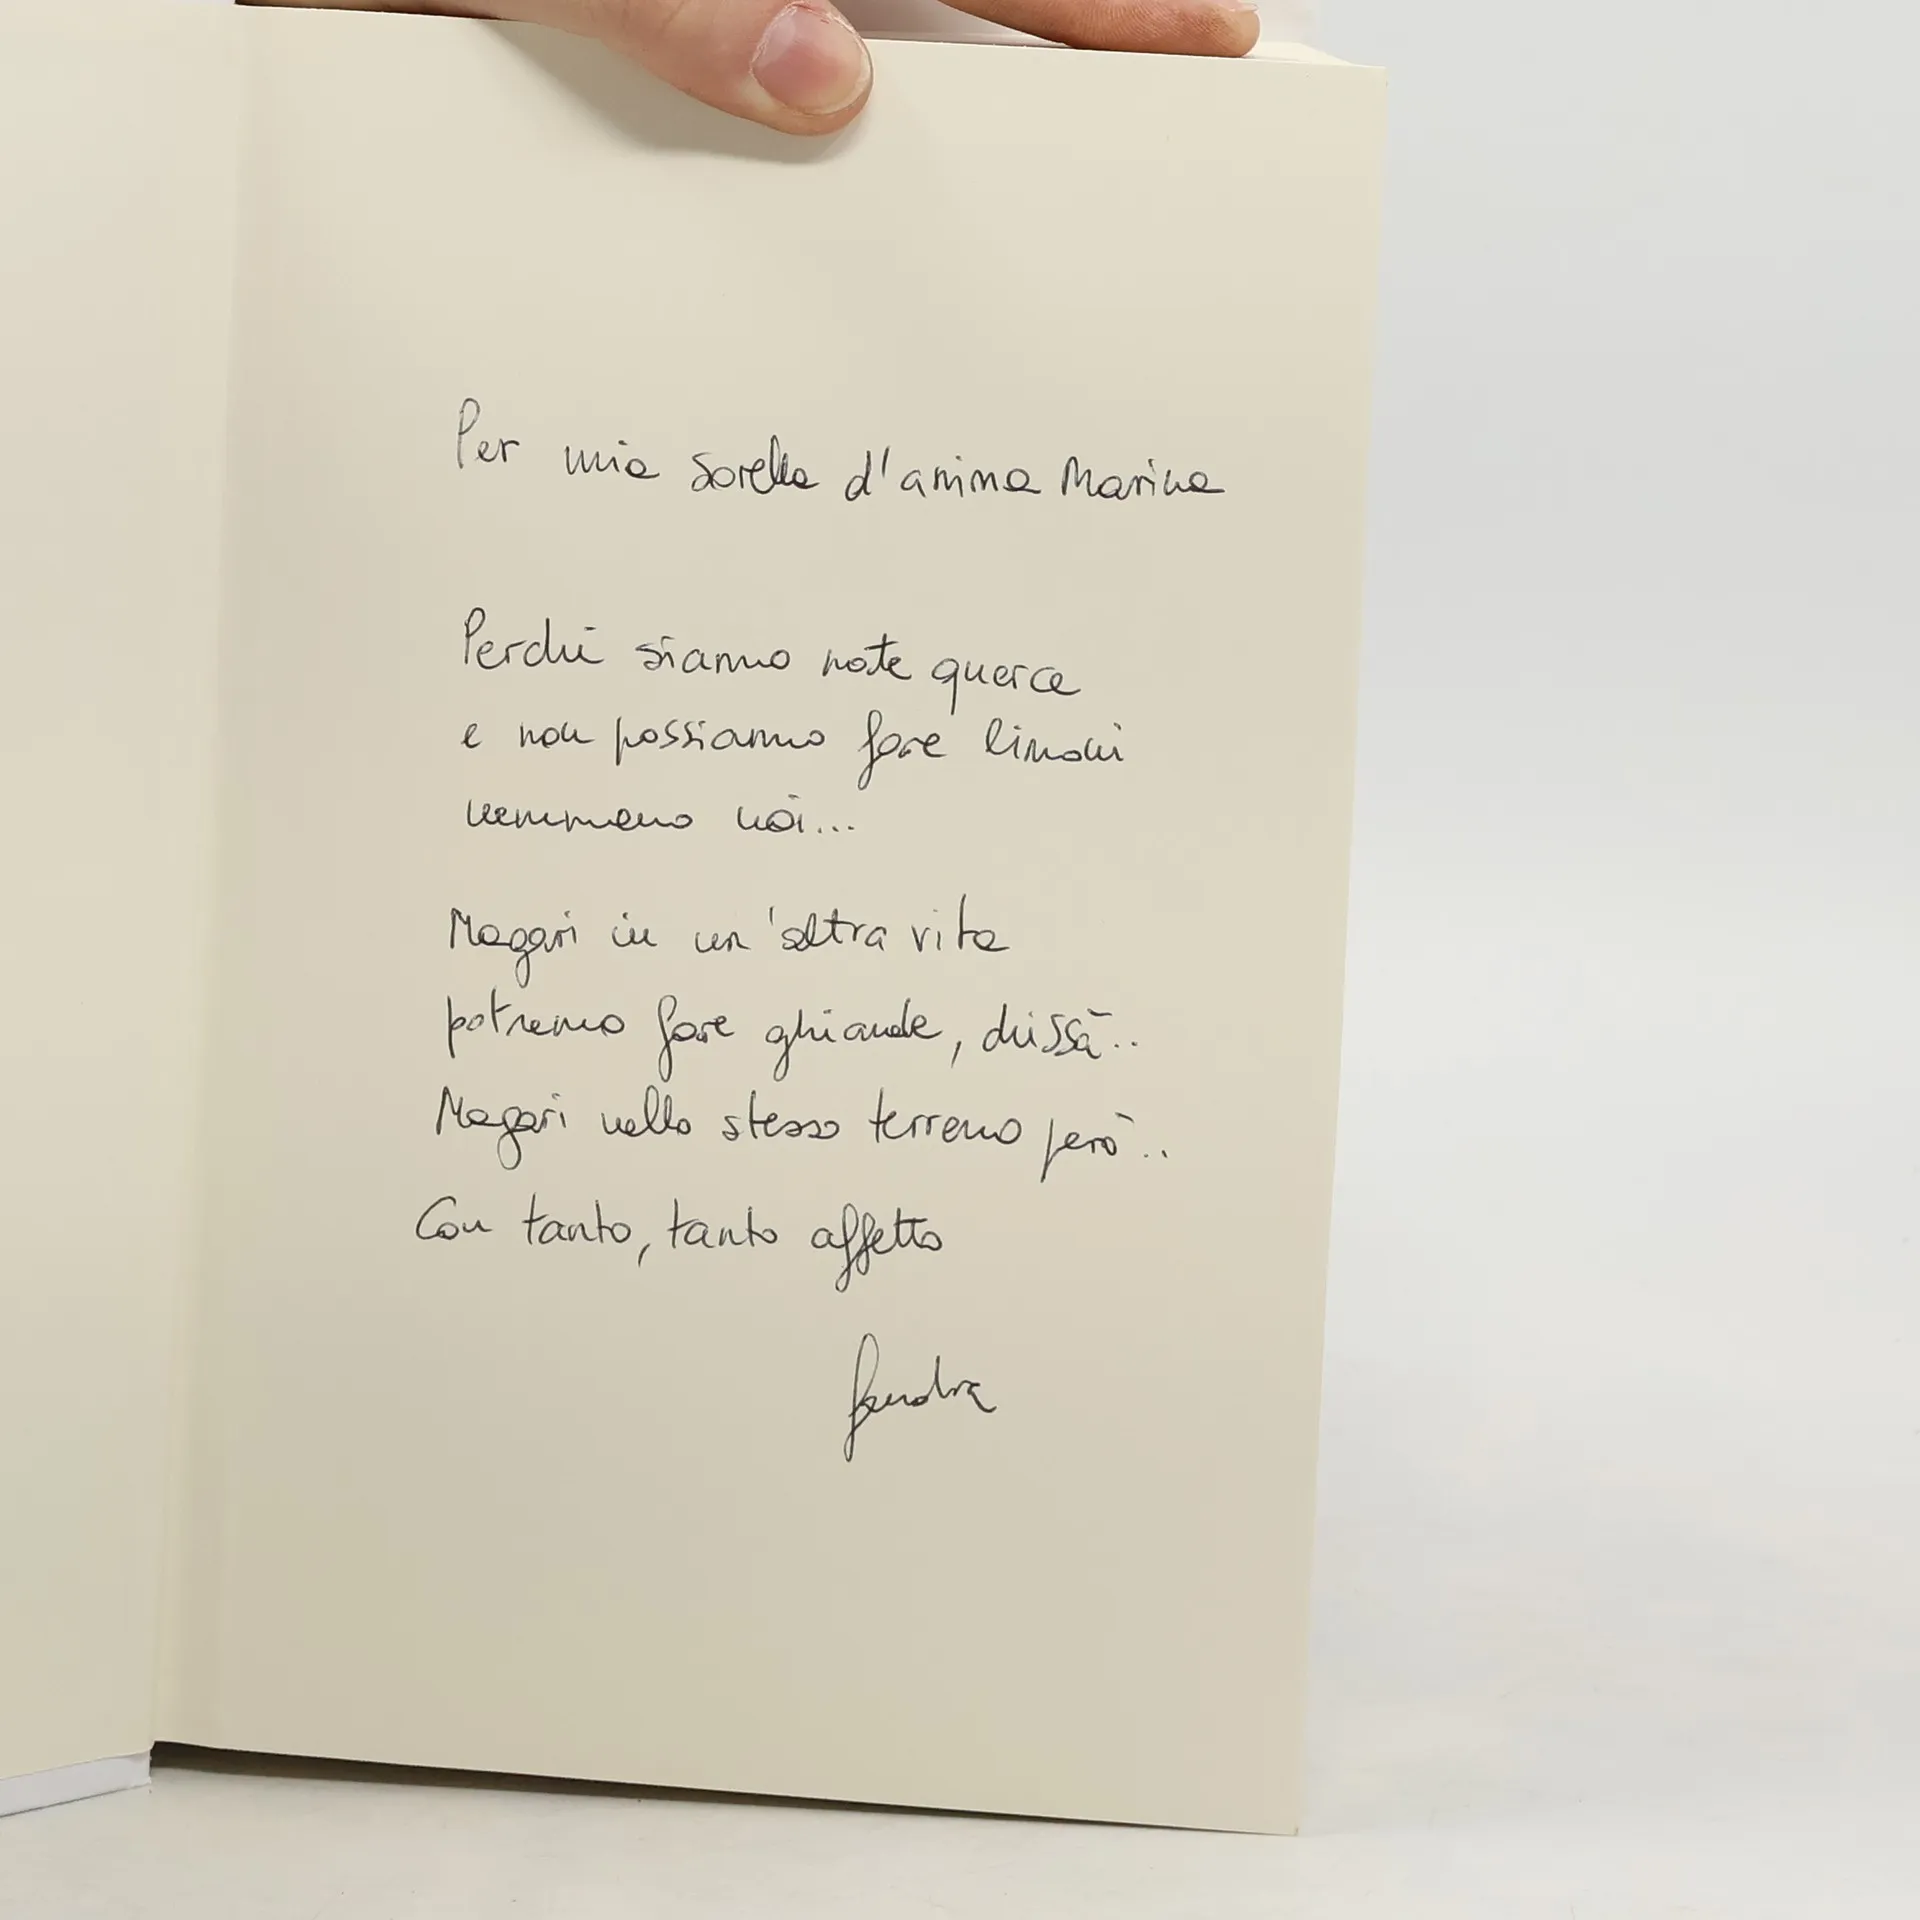 Per mia sorella d'anima Marina
Perché siamo nate querce
e non possiamo fare limoni
nemmeno noi...
Magari in un'altra vita
potremo fare ghiande, chissà..
Magari nello stesso terreno però..
Con tanto, tanto affetto
Sandra